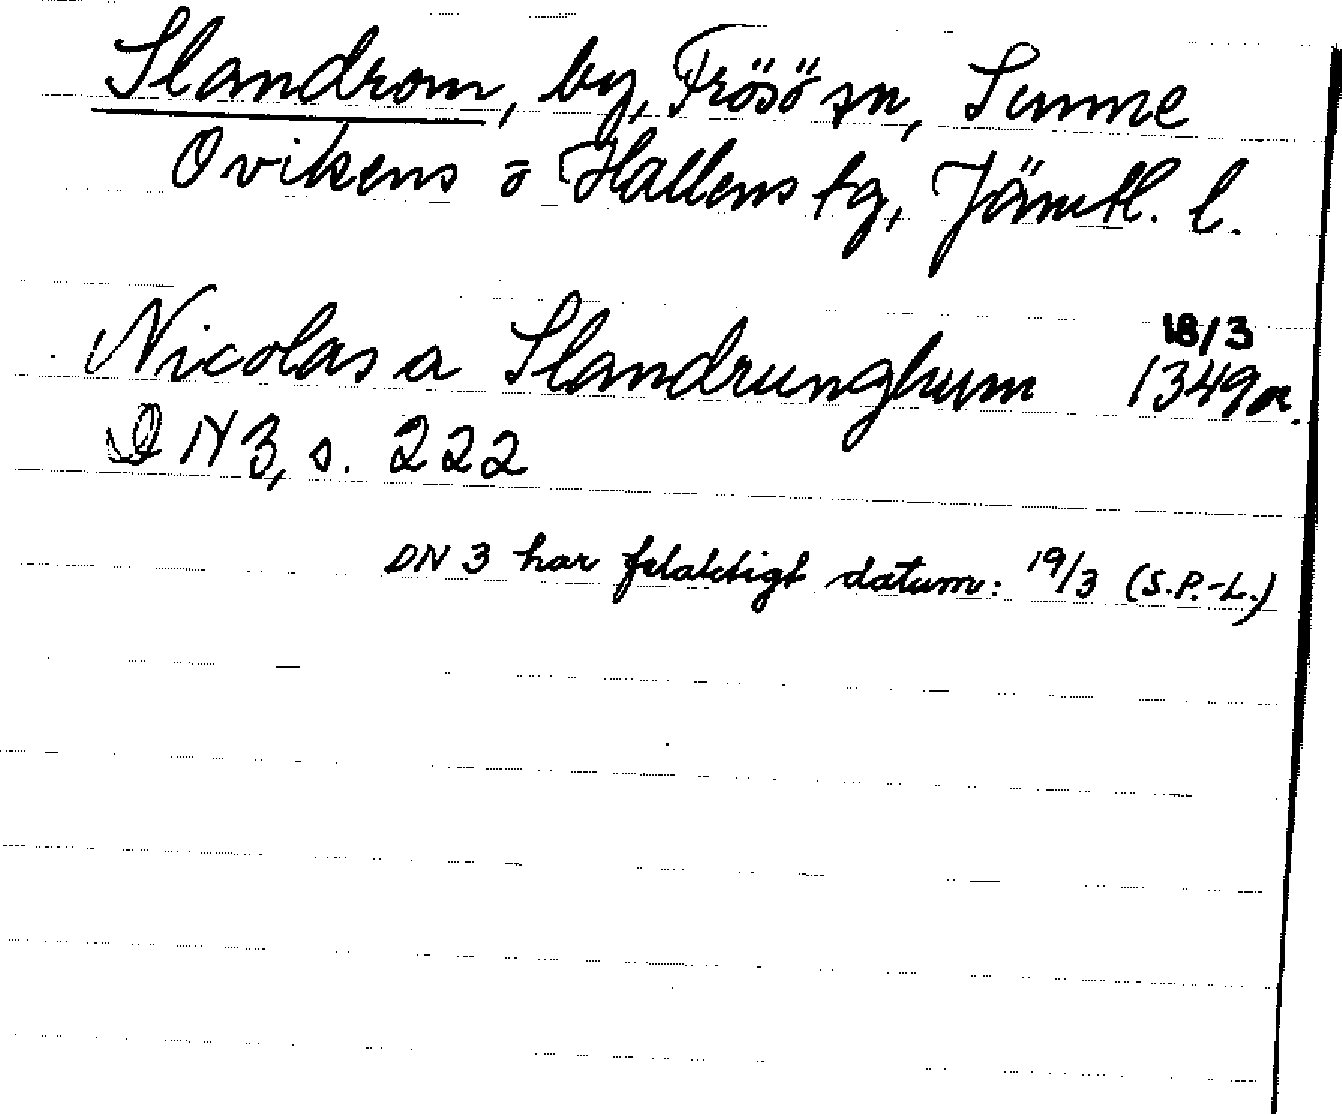 Slandrom, by, Frösö sn, Sunne
Ovikens o Hallens tg, Jämtl. l.
Nicolas a Slandrunghum 18/3 1349 or.
DN 3, s. 222
DN 3 har felaktigt datum: 19/3 (S.P.-L.)